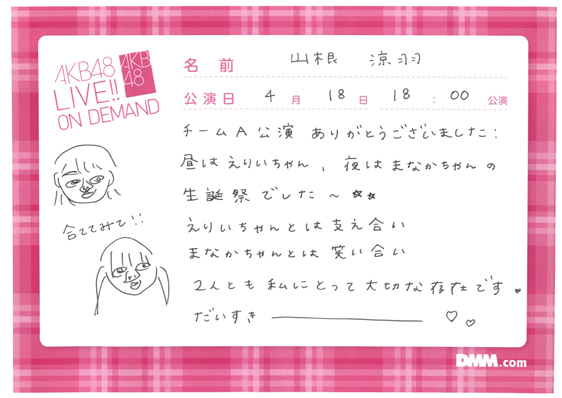 AKB48
LIVE!!
ON DEMAND
AKB
48
名前 山根 涼羽
公演日 4月 18日 18:00 公演
チームA公演 ありがとうございました:
昼はえりいちゃん、夜はまなかちゃんの
生誕祭でした〜 ☆☆
えりいちゃんとは支え合い
まなかちゃんとは笑い合い
2人とも私にとって大切な存在です。
だいすき ――――― ♡ ♡
合ててみて!!
DMM.com